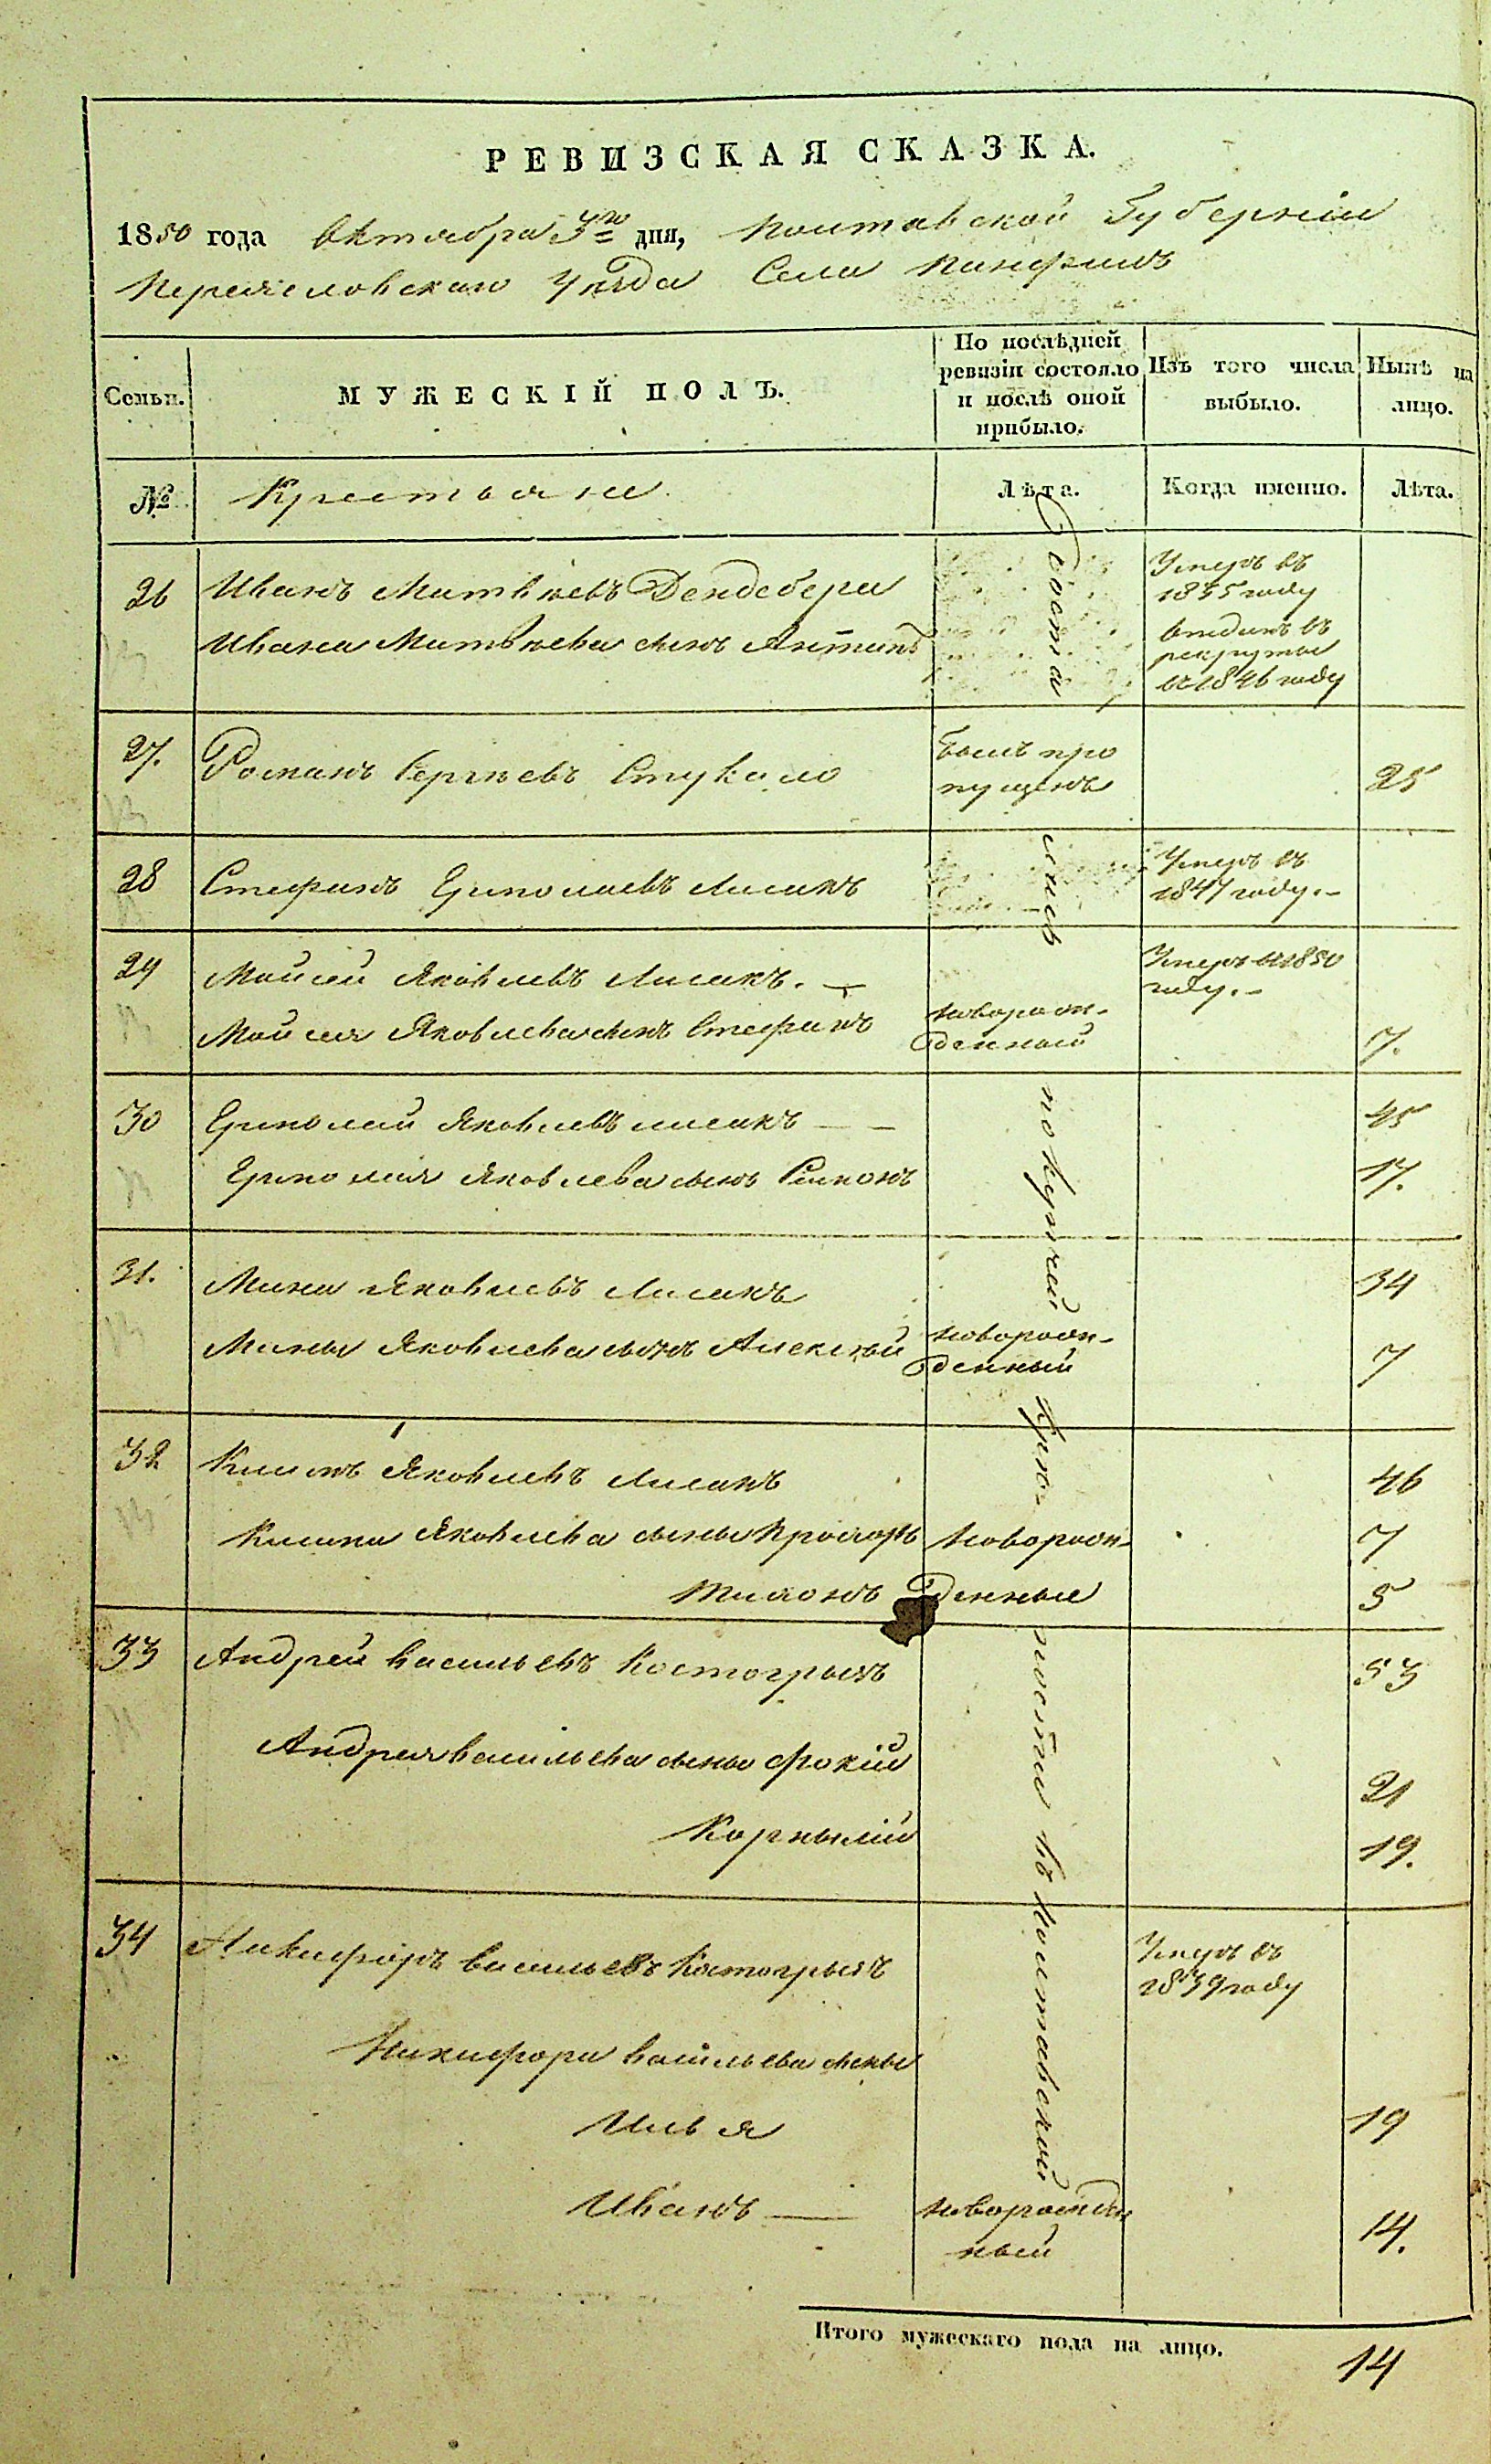 РЕВИЗСКАЯ СКАЗКА.
1850 года Октября 3го дня, Полтавской Губерніи
Переяславскаго Уѣзда Села Панфилъ
Семьи.
МУЖЕСКІЙ ПОЛЪ.
По послѣдней
ревизіи состояло
и послѣ оной
прибыло.
Изъ того числа
выбыло.
Нынѣ на
лицо.
№ Крестьяне Лѣта. Когда именно. Лѣта.
26 Иванъ Матвѣевъ Дендебера Умеръ въ
1835 году
Ивана Матвѣева сынъ Антипъ отданъ въ
рекруты
въ 1846 году
27. Романъ Сергѣевъ Стукало былъ про
пущенъ 25
28 Стефанъ Ермолаевъ Лисакъ Умеръ въ
1847 году.
29 Мойсей Яковлевъ Лисакъ. Умеръ въ 1850
году.
Мойсея Яковлева сынъ Стефанъ новорож-
денный 7.
30 Ермолай Яковлевъ Лисакъ 45
Ермолая Яковлева сынъ Симонъ 17.
31. Мина Яковлевъ Лисакъ 34
Мины Яковлева сынъ Алексѣй новорож-
денный 7
32 Климъ Яковлевъ Лисакъ 46
Клима Яковлева сыны Прохоръ новорож- 7
Тихонъ денные 5
33 Андрей Васильевъ Костогрызъ 53
Андрея Васильева сыны Фокій 21
Корнылій 19.
34 Никифоръ Васильевъ Костогрызъ Умеръ въ
1839 году
Никифора Васильева сыны
Илья 19
Иванъ новорожден
ный 14.
Достались по купчей крѣ-
пости въ Полтавской
Итого мужескаго пола на лицо. 14